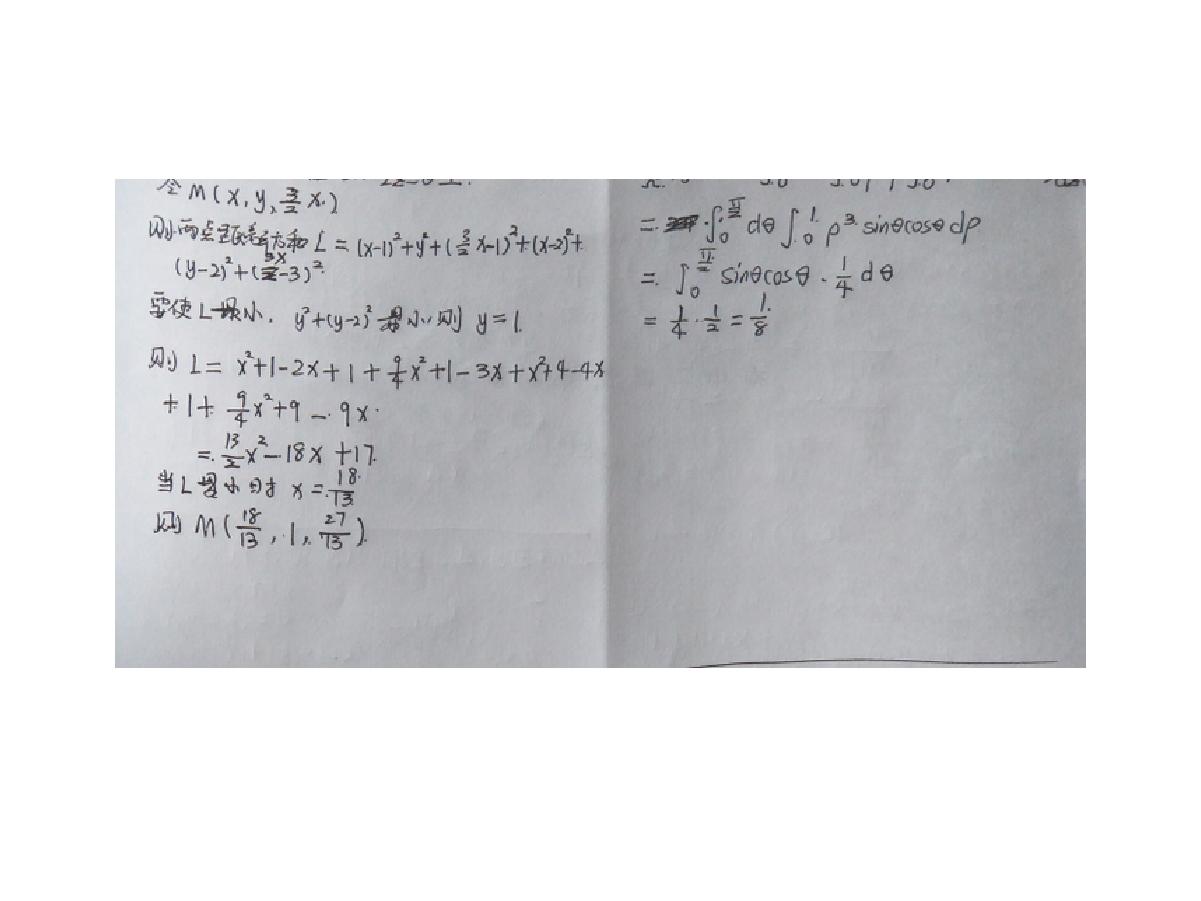 令 M(x, y, 3/2 x.)
则两点距离平方和 L = (x-1)²+y²+(3/2 x-1)²+(x-2)²+
(y-2)²+(3x/2-3)².
要使L最小. y²+(y-2)²最小,则 y=1.
则 L = x²+1-2x+1+9/4 x²+1-3x+x²+4-4x
+1+ 9/4 x²+9 - 9x.
= 13/2 x²-18x+17.
当L最小时 x = 18/13
则 M(18/13, 1, 27/13).
= ∫₀^(π/2) dθ ∫₀^1 ρ³ sinθcosθ dρ
= ∫₀^(π/2) sinθcosθ · 1/4 dθ
= 1/4 · 1/2 = 1/8